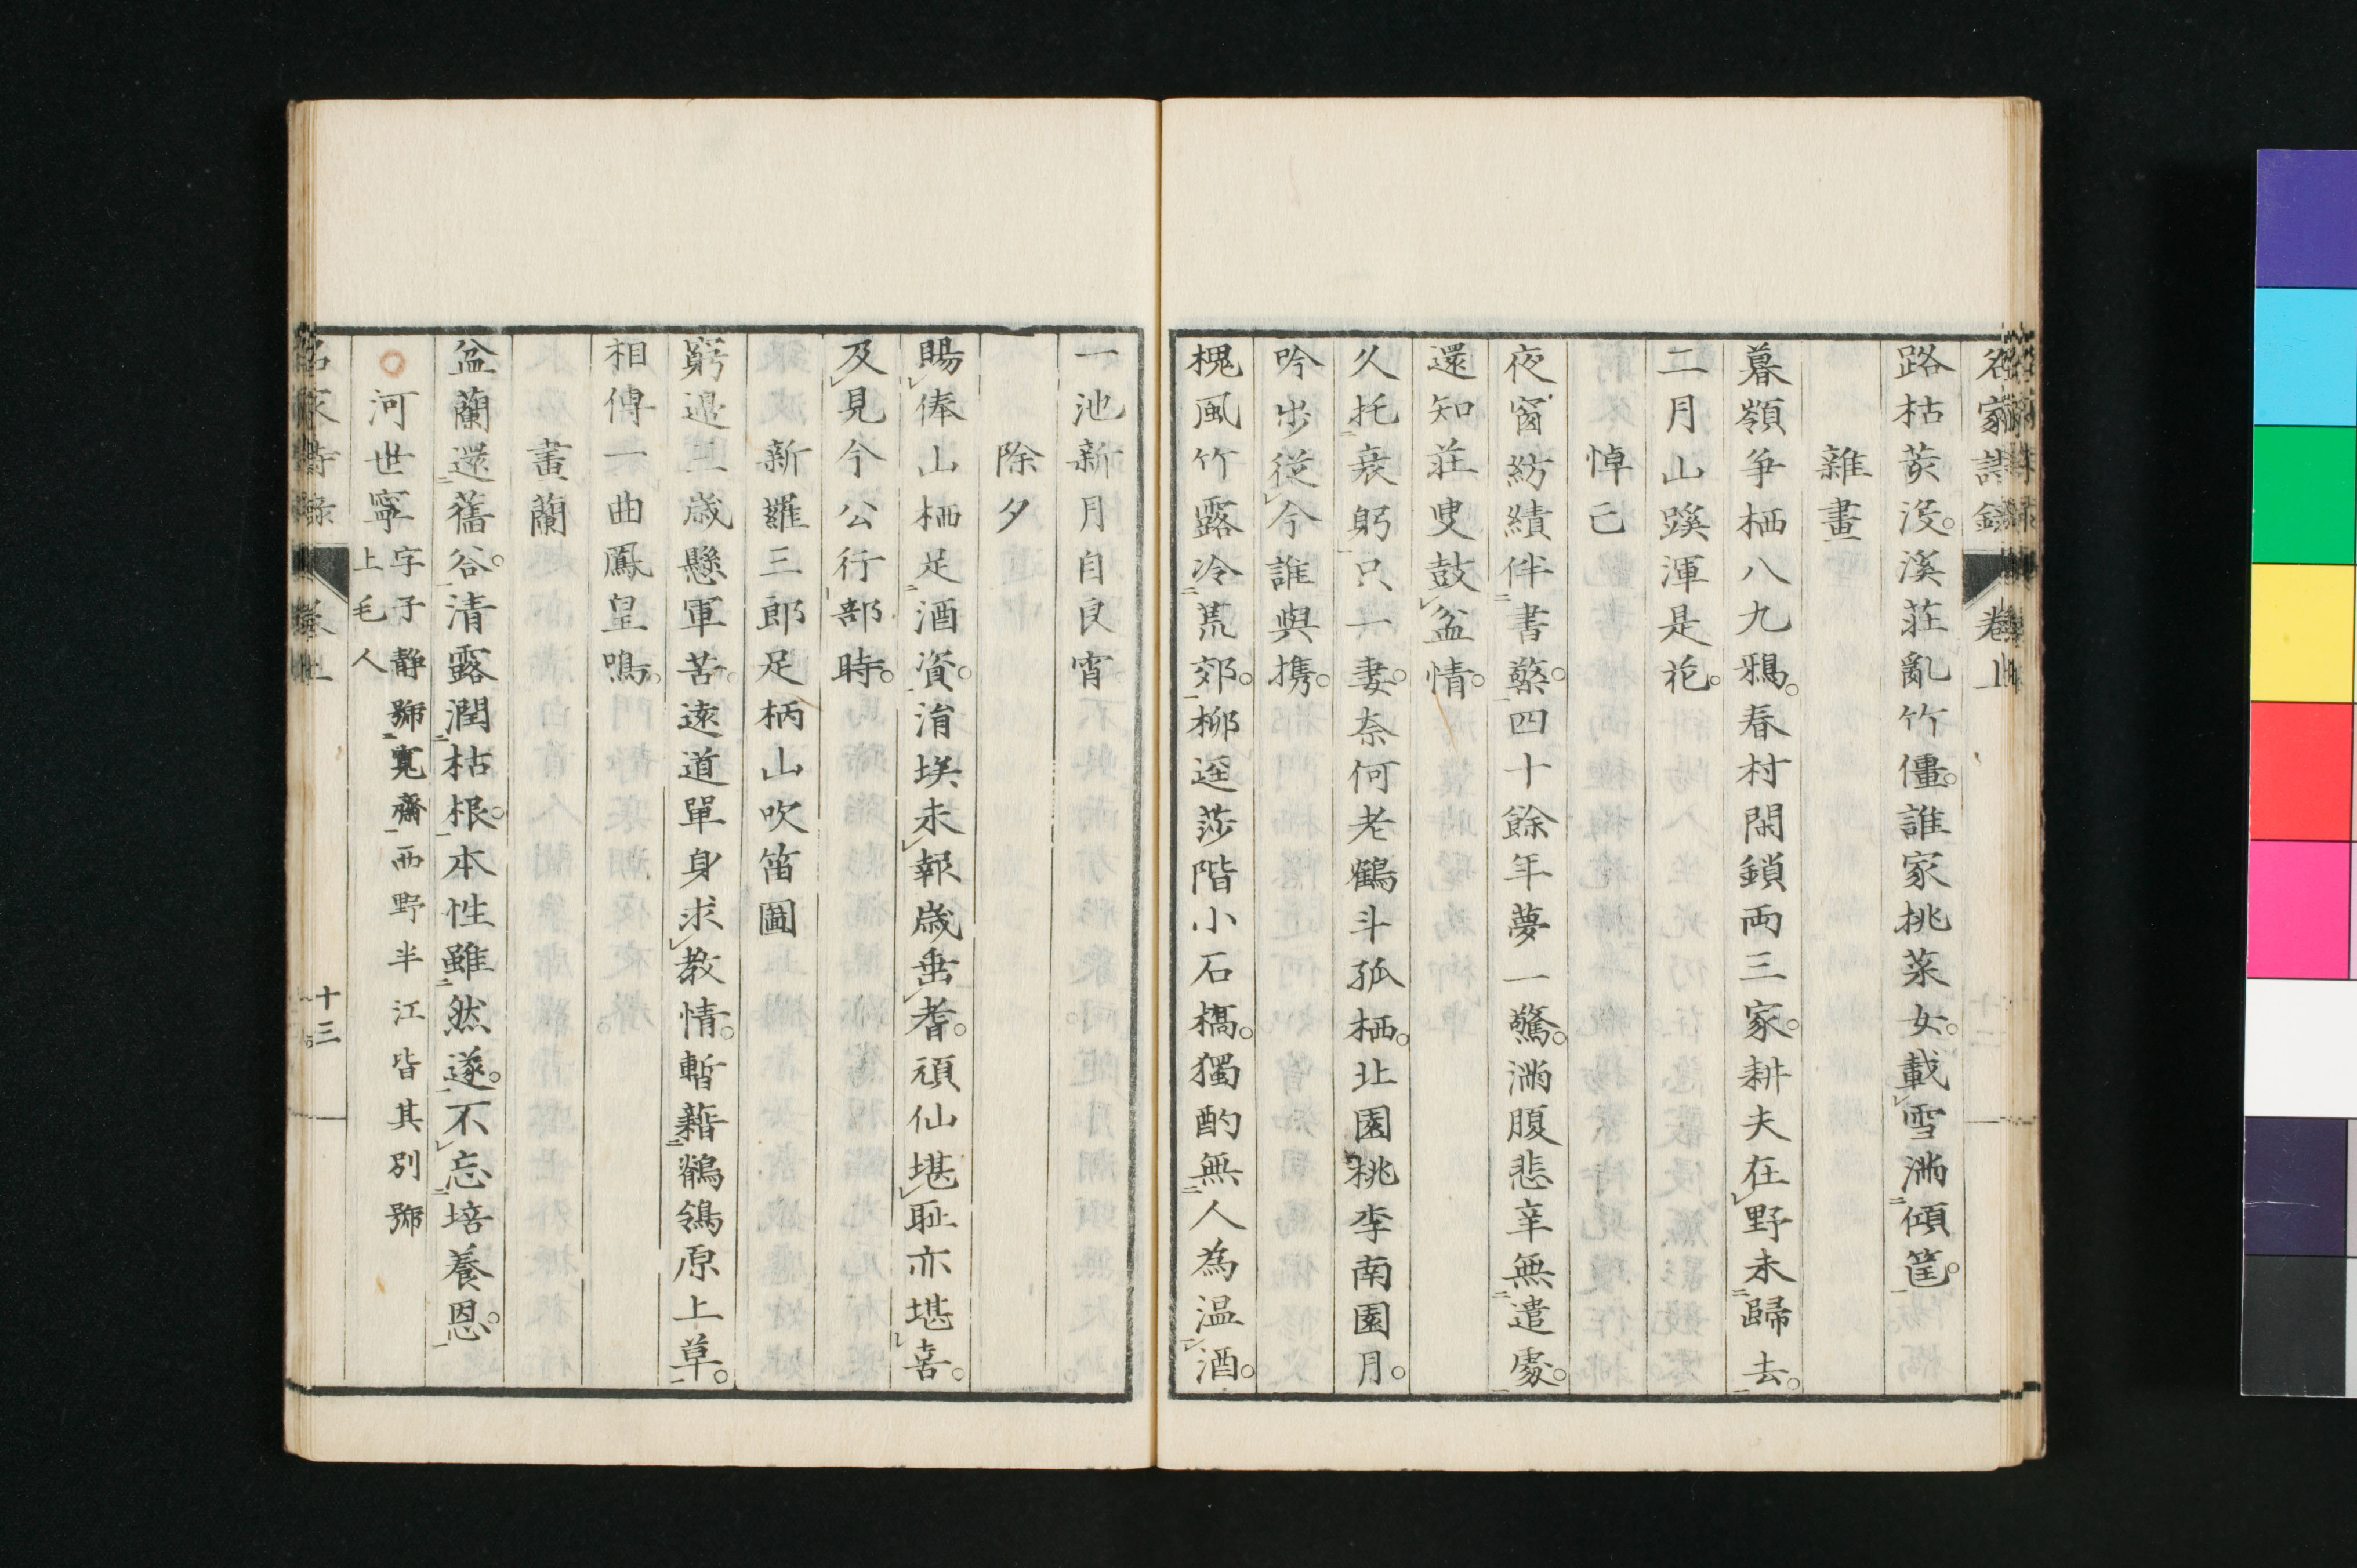 名家詩録 卷上
路枯荄没。溪莊亂竹僵。誰家挑菜女。載雪滿傾筐。
雜畫
暮嶺争栖八九鴉。春村閑鎖両三家。耕夫在野未歸去。
二月山蹊渾是花。
悼亡
夜窗紡績伴書檠。四十餘年夢一驚。滿腹悲辛無遣處。
還知莊叟鼓盆情。
久托衰躬只一妻。奈何老鶴斗孤栖。北園桃李南園月。
吟歩從今誰與携。
槐風竹露冷荒郊。柳逕莎階小石橋。獨酌無人為温酒。
一池新月自良宵
除夕
賜俸山栖足酒資。涓埃未報歳垂耆。頑仙堪耻亦堪喜。
及見今公行部時。
新羅三郎足柄山吹笛圖
窮邊三歳懸軍苦。遠道單身求教情。暫藉鶺鴒原上草。
相傳一曲鳳皇鳴。
畫蘭
盆蘭還舊谷。清露潤枯根。本性雖然遂。不忘培養恩。
河世寧 字子静號寛齋西野半江皆其別號
上毛人
名家詩録 卷上 十三